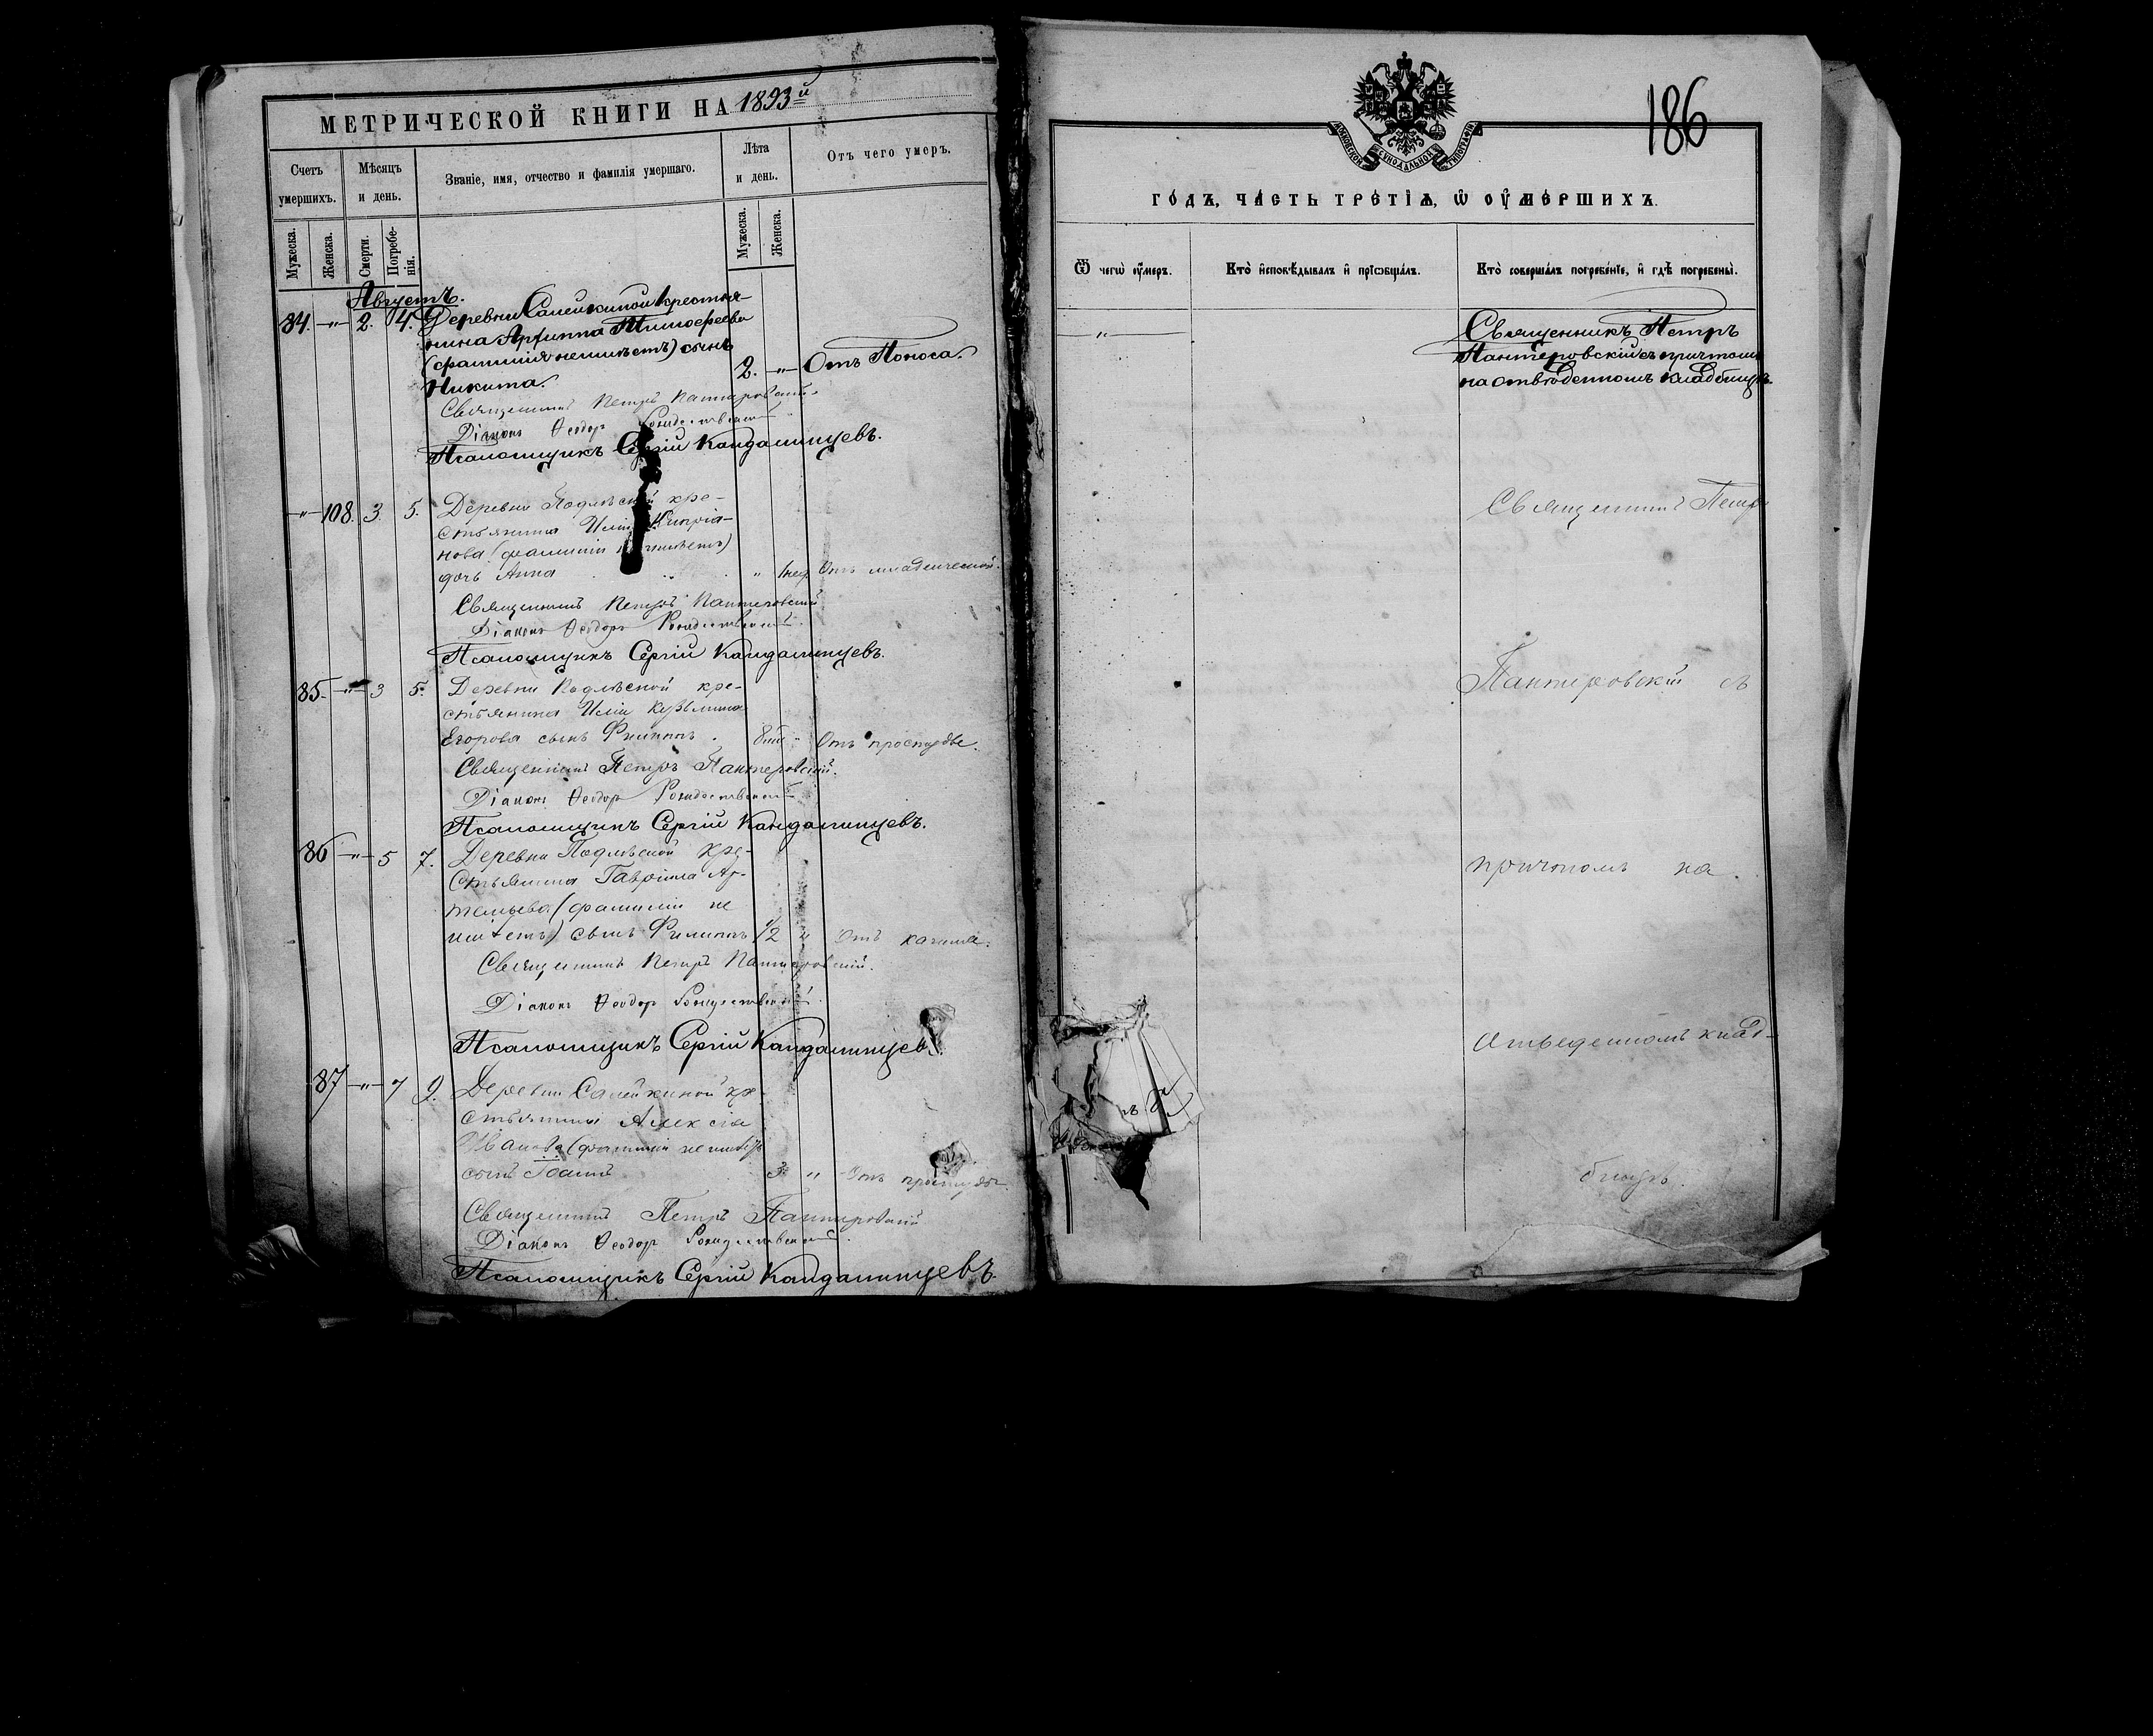 МЕТРИЧЕСКОЙ КНИГИ НА 1893й
Счетъ умершихъ.
Мѣсяцъ и день.
Званіе, имя, отчество и фамилія умершаго.
Лѣта и день.
Отъ чего умеръ.
Мужеска.
Женска.
Смерти.
Погребе-
нія.
Мужеска.
Женска.
Августъ.
84. —"— 2. 4. Деревни Салейкиной крестья-
нина Архиппа Тимофеева
(фамиліи неимѣетъ) сынъ
Никита. 2. —"— Отъ Поноса.
Священникъ Петръ Пантеровскій.
Діаконъ Ѳеодоръ Рождественскій
Псаломщикъ Сергій Кандалинцевъ.
—"— 108. 3. 5. Деревни Подлѣсной кре-
стьянина Иліи Кипріа-
нова (фамиліи
дочь Анна " 1 нед. Отъ младенческой.
Священникъ Петръ Пантеровскій
Діаконъ Ѳеодоръ Рождественскій.
Псаломщикъ Сергій Кандалинцевъ.
85. —"— 3 5. Деревни Подлѣсной кре-
стьянина Иліи Кузьмина
Егорова сынъ Филиппъ. " Отъ простуды.
Священникъ Петръ Пантеровскій.
Діаконъ Ѳеодоръ Рождественскій
Псаломщикъ Сергій Кандалинцевъ.
86 —"— 5 7. Деревни Подлѣсной кре-
стьянина Гавріила Ар-
темьева (фамиліи не
имѣетъ) сынъ Филиппъ 1/2 " Отъ кашля.
Священникъ Петръ Пантеровскій.
Діаконъ Ѳеодоръ Рождественскій.
Псаломщикъ Сергій Кандалинцевъ.
87 —"— 7 9. Деревни Салейкиной кре-
стьянина Алексія
Иванова (фамиліи не имѣетъ
сынъ Іоаннъ 3. " Отъ простуды.
Священникъ Петръ Пантеровскій
Діаконъ Ѳеодоръ Рождественскій.
Псаломщикъ Сергій Кандалинцевъ.
186
МОСКОВСКОЙ СѴНОДАЛЬНОЙ ТИПОГРАФІИ
ГО́ДЪ, ЧА́СТЬ ТРЕ́ТІѦ, Ѿ ОУ҆МЕ́РШИХЪ.
Ѿ чегѡ̀ оу҆́меръ.
Кто̀ и҆сповѣ́дывалъ и҆ прїѡбща́лъ.
Кто̀ соверша́лъ погребе́нїе, и҆ гдѣ̀ погребены̀.
—"—
Священникъ Петръ
Пантеровскій съ причтомъ
на отвѣденномъ кладбищѣ.
Священникъ Петръ
Пантеровскій съ
причтомъ на
отведенномъ клад-
бищѣ.